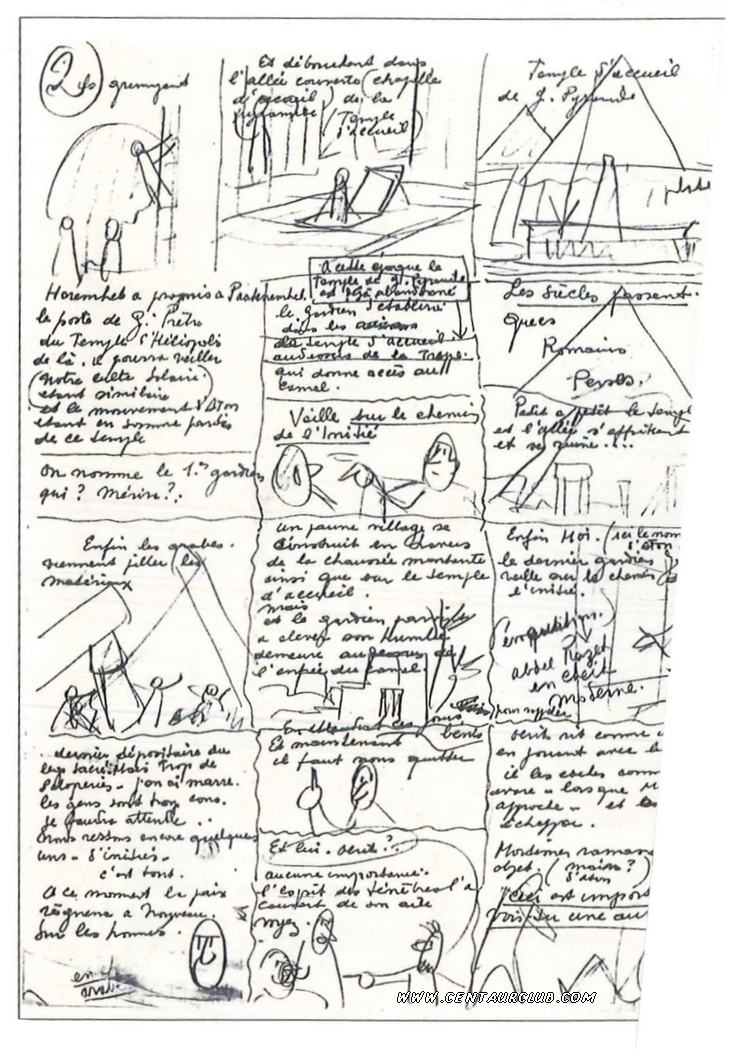 2
Ils grimpent
Et débouchent dans
l'allée couverte (chapelle
d'accueil) de la
pyramide (Temple
d'accueil)
Temple d'accueil
de g. Pyramide
Horemheb a promis a Paatenemheb.
le poste de G. Prêtre
du Temple d'Héliopolis
de là. il pourra veiller
(notre culte Solaire.
étant similaire
et le mouvement d'Aton
étant en somme partie
de ce temple
On nomme le 1er gardien
qui ? Mérire ?.
A cette époque le
Temple de g. Pyramide
est déjà abandonné
le gardien s'établira
dans les
du temple d'accueil
au dessus de la Trape.
qui donne accès au
tunnel.
Veille sur le chemin
de l'Initié
Les Siècles passent.
grecs
Romains
Perses.
Petit a petit le templ
et l'allée s'effritent
et se ruine....
Enfin les arabes.
viennent piller les
matériaux
un jaune village se
construit en travers
de la chaussée montante
ainsi que sur le temple
d'accueil.
mais
et le gardien
a élevé son humble
demeure au dessus de
l'entrée du tunnel.
Enfin Moi. (ici le nom
d'Aton
le dernier gardien
veille sur le chemin
l'initié.
Abdel Razek
en
moderne.
pour rappeler
dernier dépositaire du
legs sacré. Mais trop de
saloperies. j'en ai marre.
les gens sont trop cons.
Il faudra attendre..
Nous restons encore quelques
uns - d'initiés -
c'est tout.
A ce moment la paix
règnera a nouveau.
sur les hommes.
Et maintenant
il faut nous quitter
Et lui. Olrik ?
aucune importance.
l'esprit des ténèbres l'a
couvert de son aile
voyez.
Olrik rit comme
en jouant avec le
il les cache comm
avare - lorsque M
approche - et
échappe.
Mortimer ramas
objet. (mains ?)
d'Aton
Ceci est import
vois-tu une au
WWW.CENTAURCLUB.COM